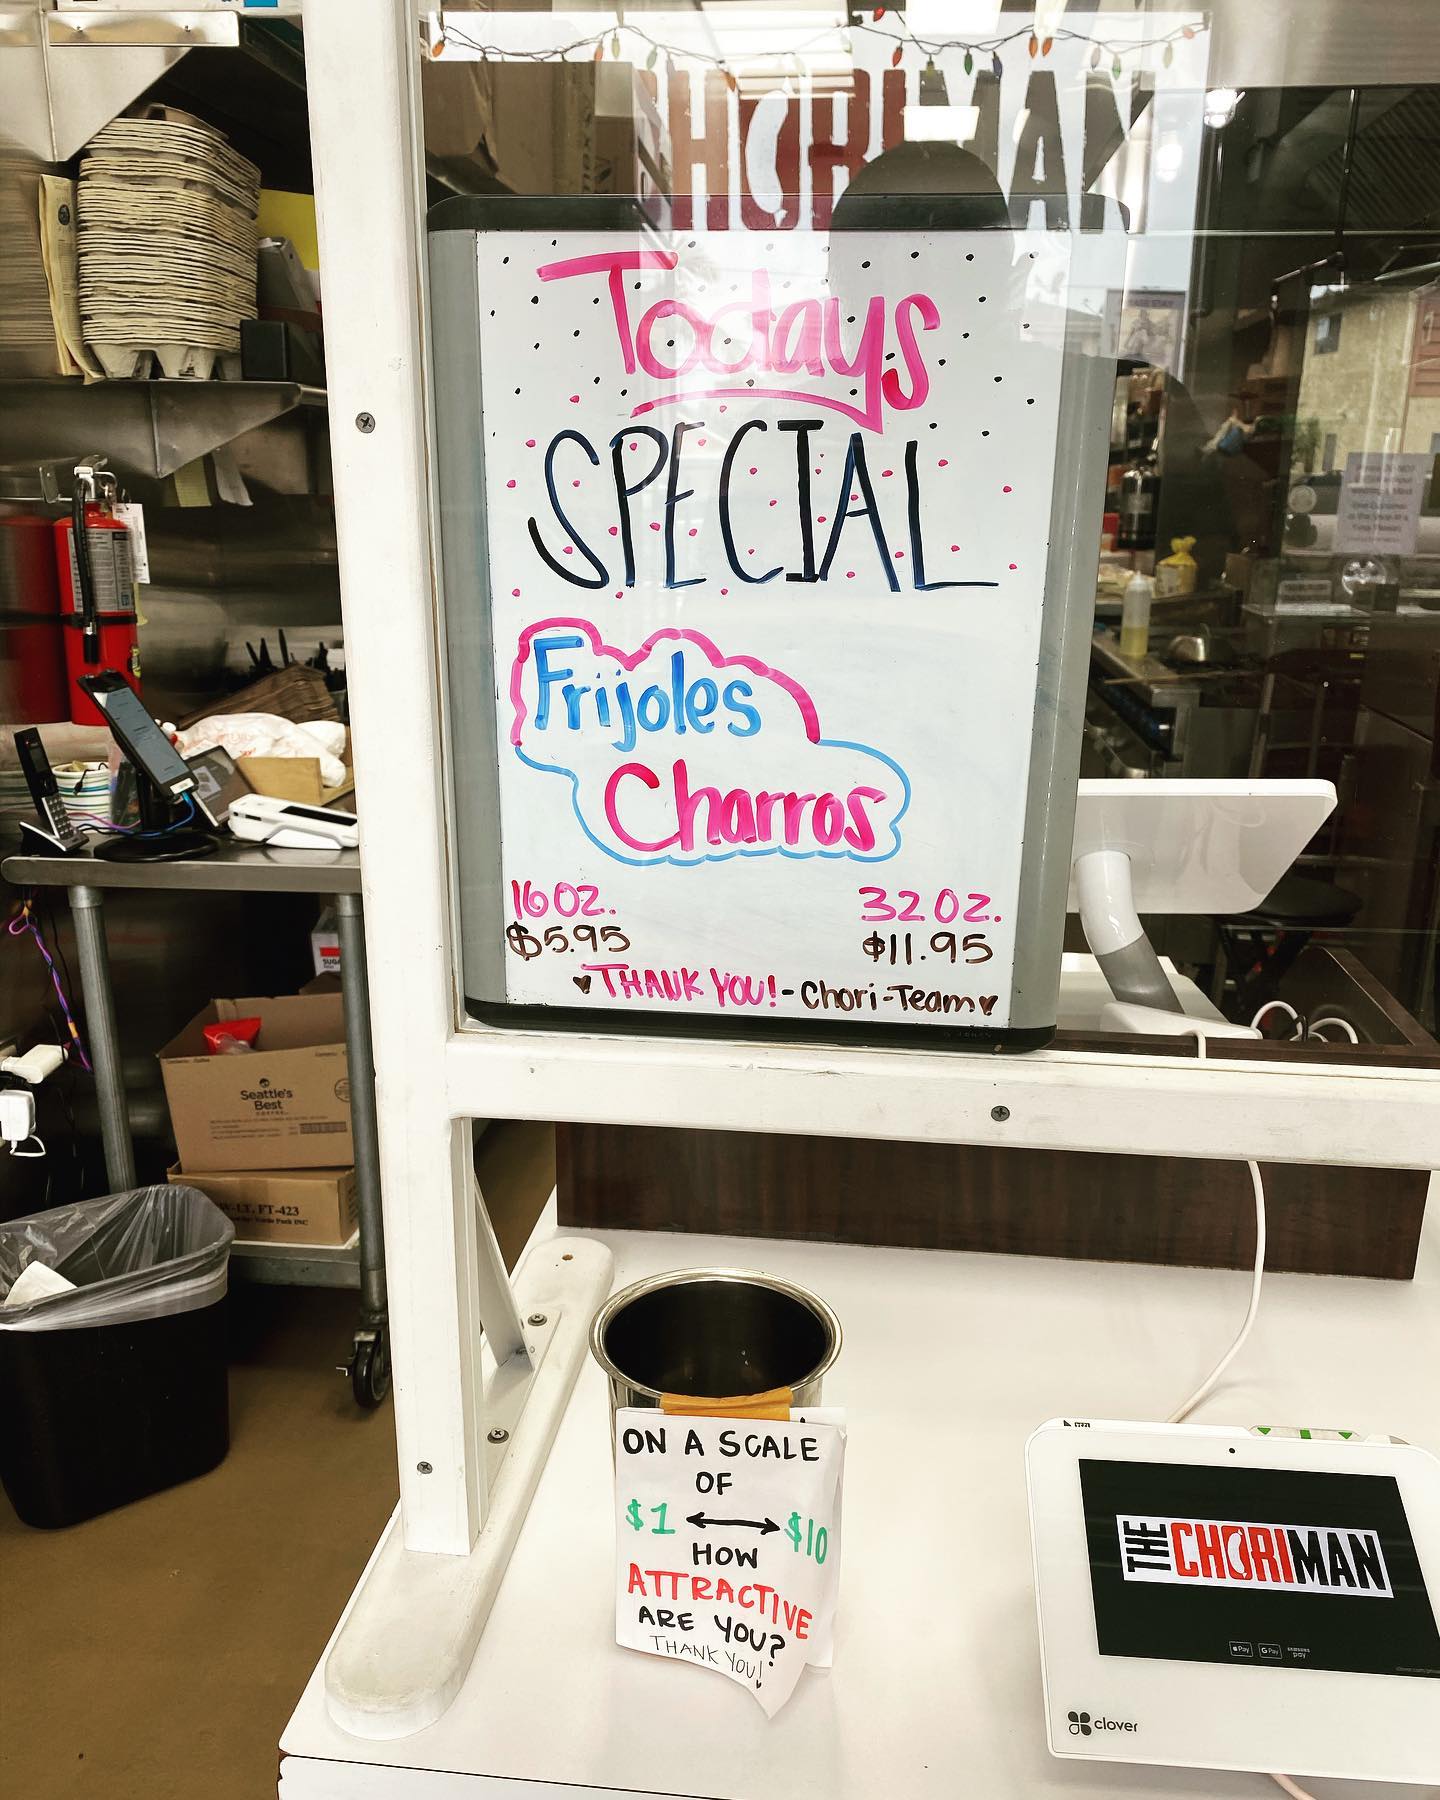 CHORIMAN
Todays
SPECIAL
Frijoles
Charros
16 OZ.
$5.95
32 OZ.
$11.95
THANK YOU! - Chori-Team
Seattle's
Best
COFFEE
FT-423
ON A SCALE
OF
$1 ↔ $10
HOW
ATTRACTIVE
ARE YOU?
THANK YOU!
THE CHORIMAN
Pay
G Pay
SAMSUNG
pay
clover